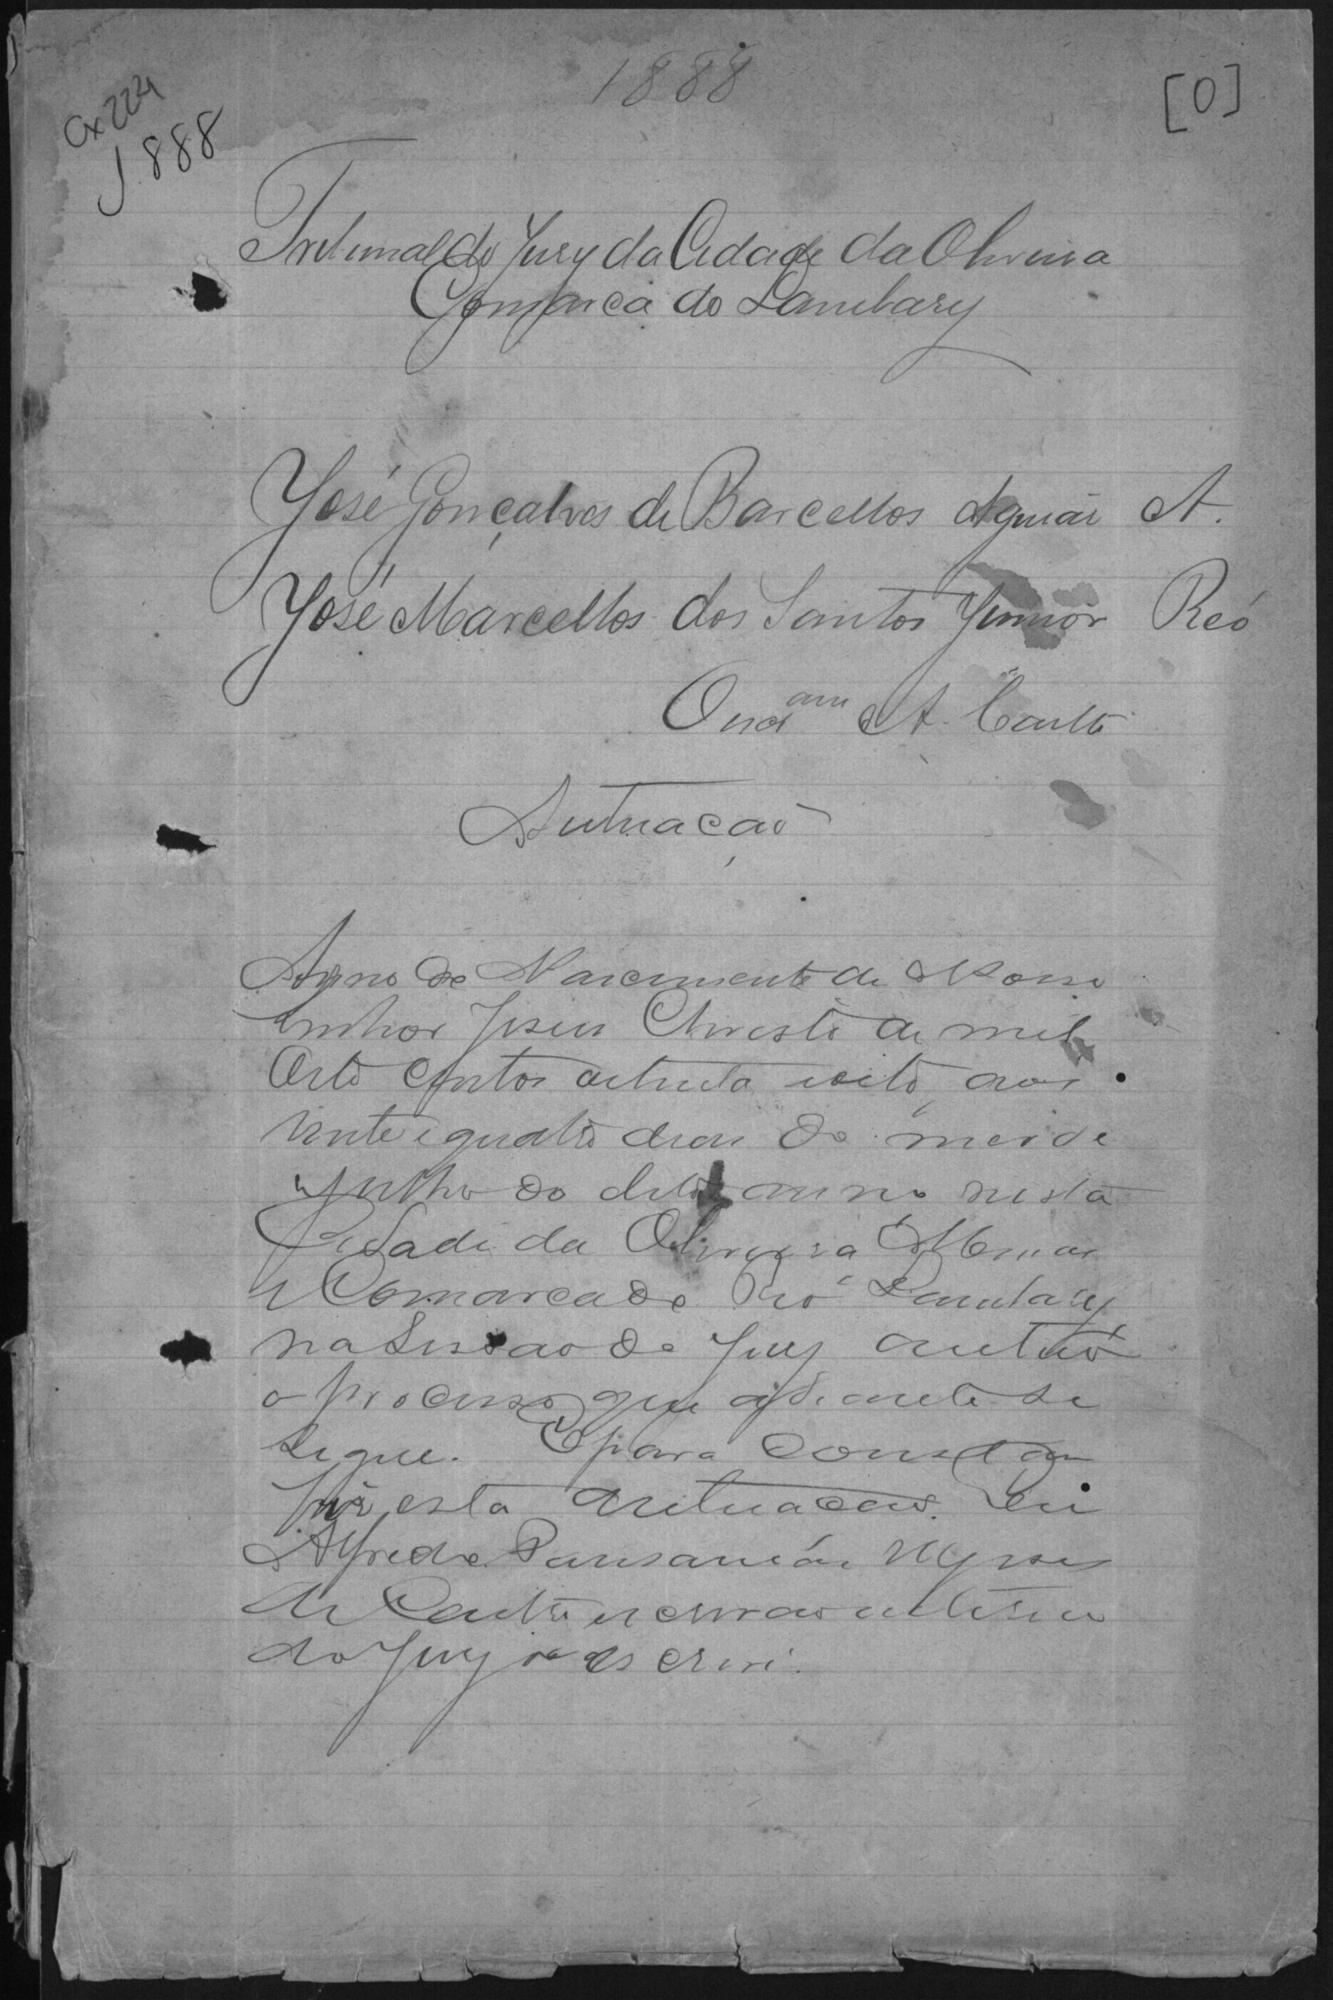 1888
[0]
Cx 224
1888
Tribunal do Jury da Cidade da Oliveira
Comarca do Lambary
José Gonçalves de Barcellos Aguiar A.
José Marcellos dos Santos Junior Réo
Autuação
Anno do Nascimento de Nosso
Senhor Jesus Christo de mil
Oito centos oitenta e oito, aos
vinte e quatro dias do mez de
Julho do dito anno nesta
Cidade da Oliveira Minas
e Comarca do Rio Lambary
na Sessão do Jury autuo
o processo que adiante se
segue. E para constar
fiz esta autuação. Eu
Alfredo Pausanias
de Castro escrivão interino
do Jury o escrevi.